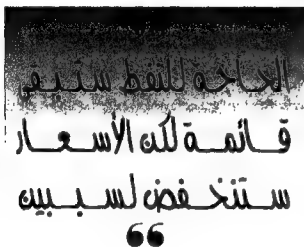 الحاجة للنفط ستبقى
قائمة لكن الأسعار
ستنخفض لسببين
66